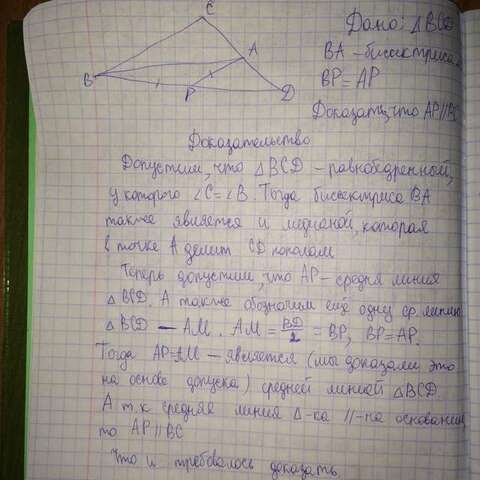 C
Дано: △BCD
A
BA – биссектриса
B
BP = AP
P
D
Доказать, что AP//BC
Доказательство
Допустим, что △BCD – равнобедренный,
у которого ∠C=∠B. Тогда биссектриса BA
также является и медианой, которая
в точке A делит CD пополам.
Теперь допустим, что AP – средняя линия
△BCD. А также обозначим ещё одну ср. линию
△BCD – AM. AM = BD/2 = BP, BP = AP.
Тогда AP=AM – является (мы доказали это
на основе допуска) средней линией △BCD.
А т.к средняя линия △-ка //-на основанию,
то AP//BC
Что и требовалось доказать.